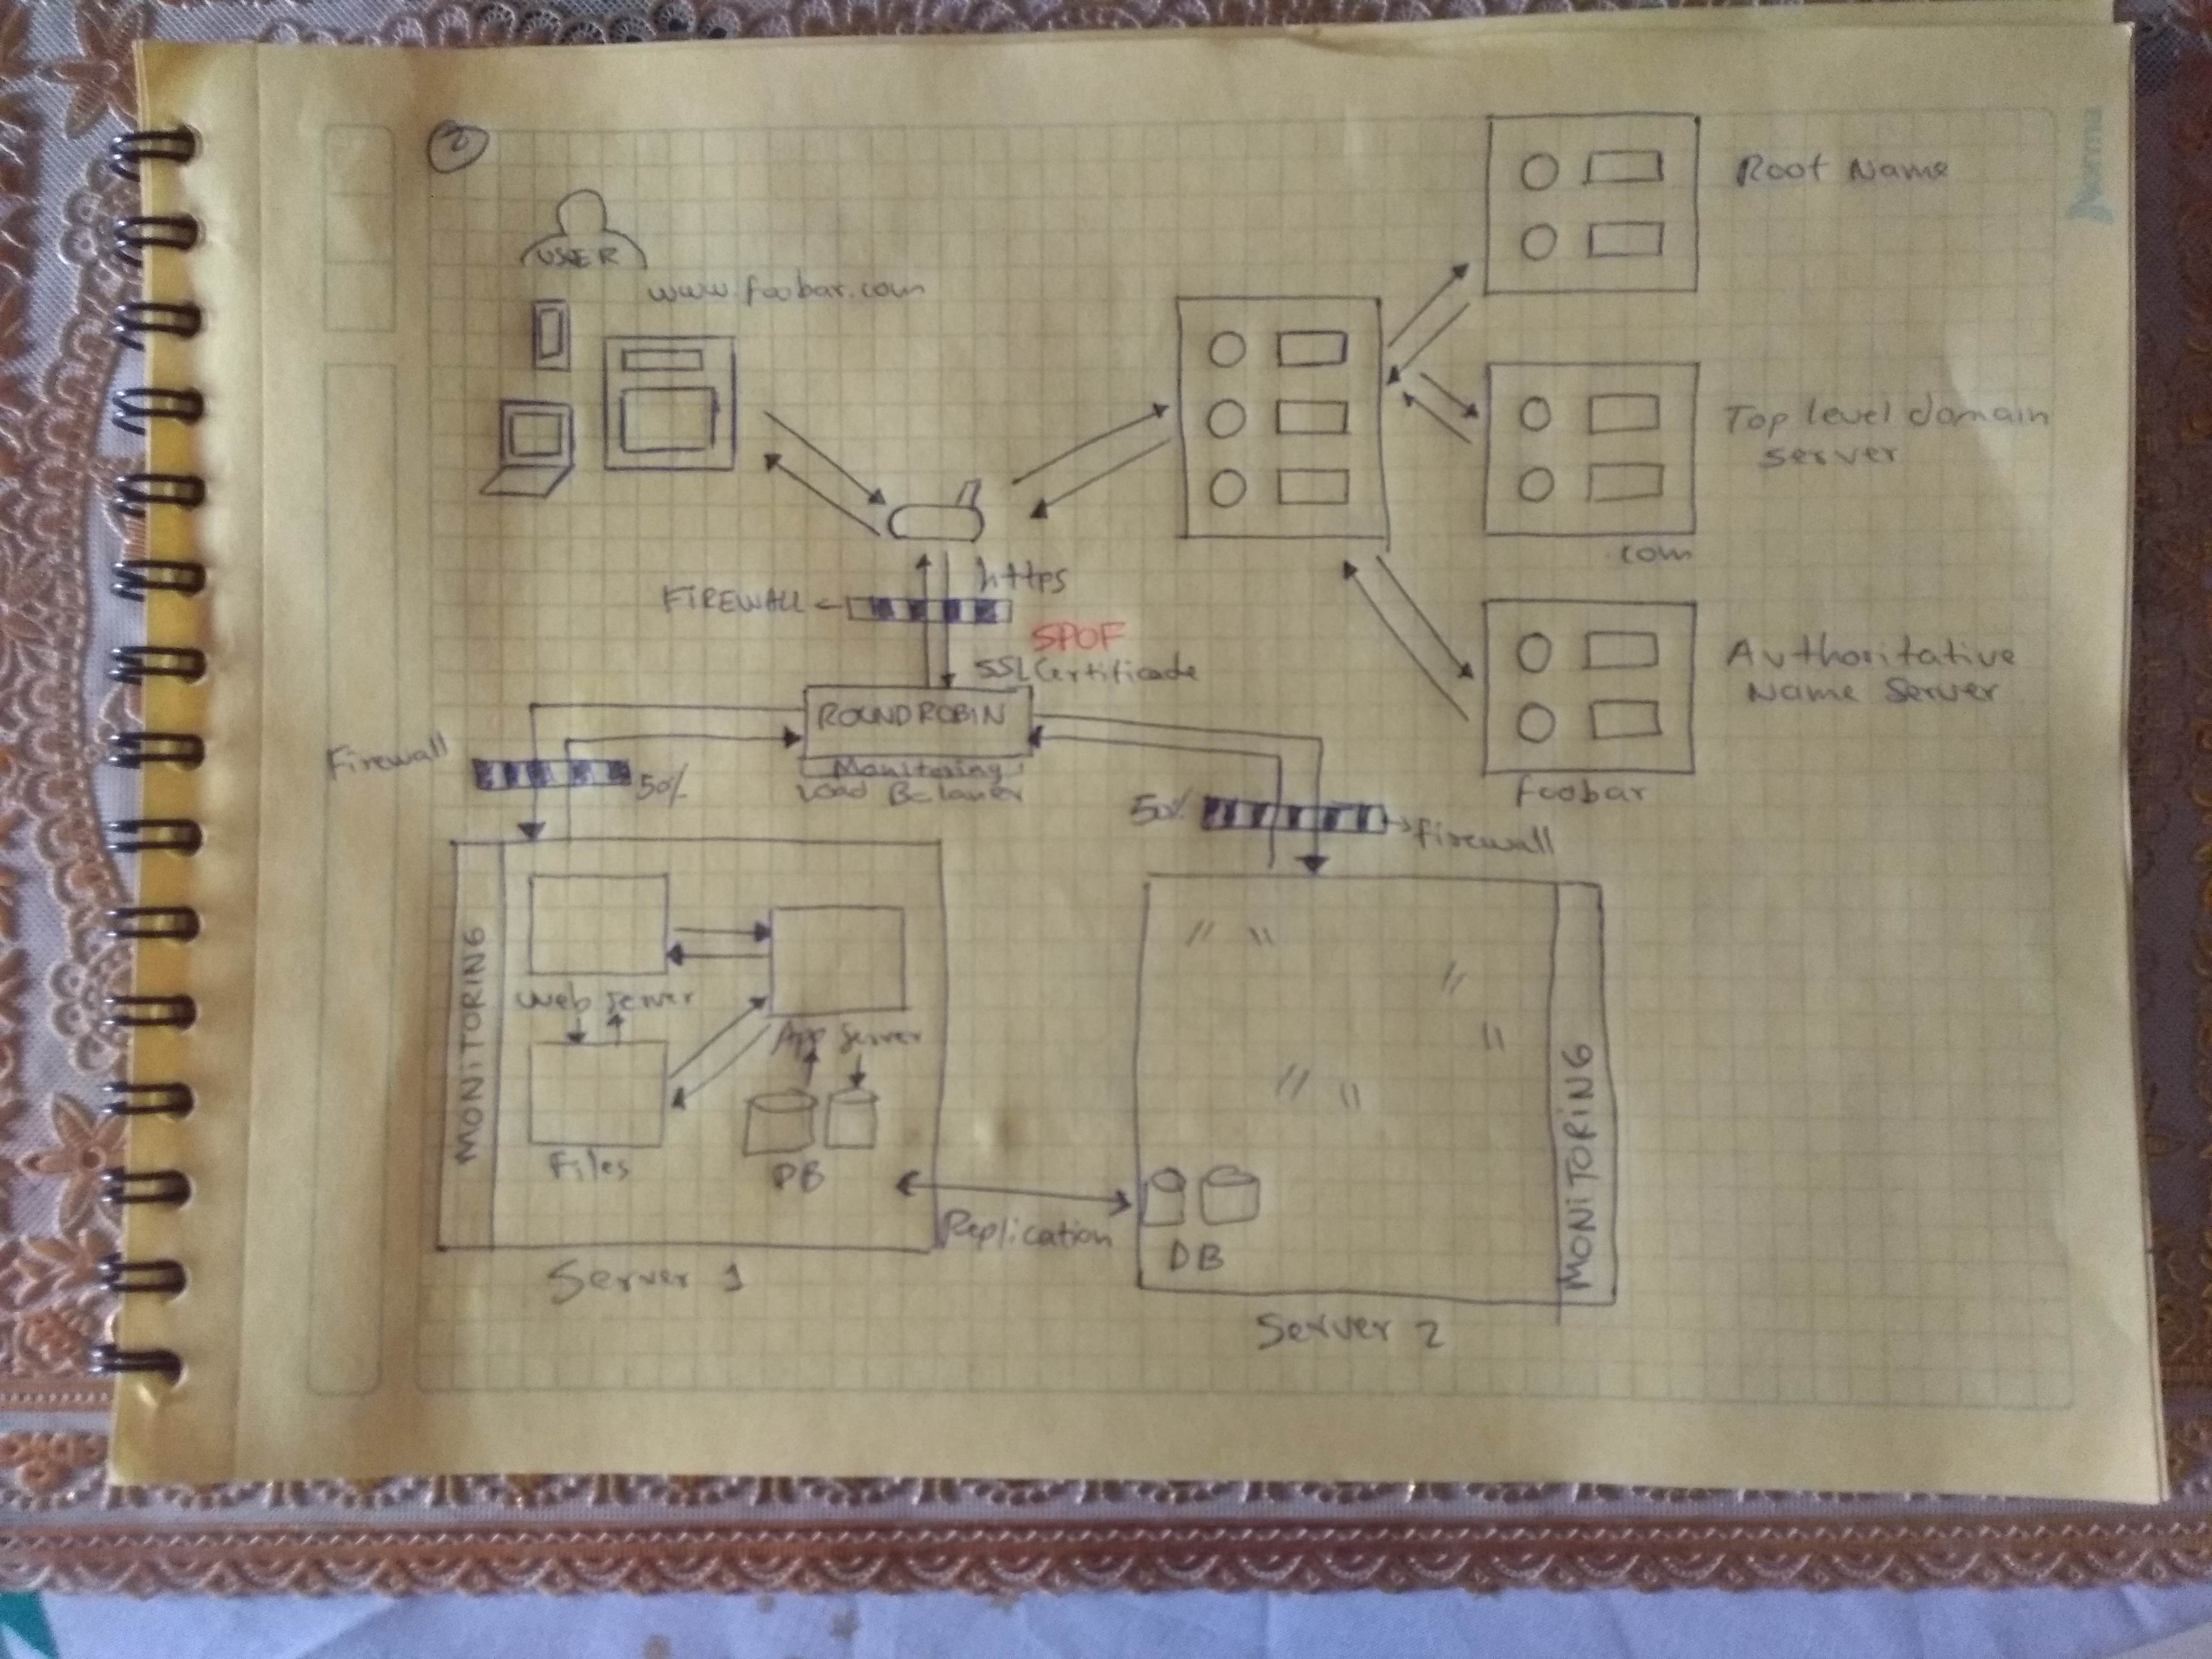 2
USER
www.foobar.com
Root Name
Top level domain
server
.com
Authoritative
Name Server
foobar
https
FIREWALL
SPOF
SSL Certificade
ROUNDROBIN
Monitoring
Load Balancer
Firewall
50%
50%
firewall
MONITORING
Web Server
App Server
Files
DB
Server 1
Replication
DB
MONITORING
Server 2
Norma